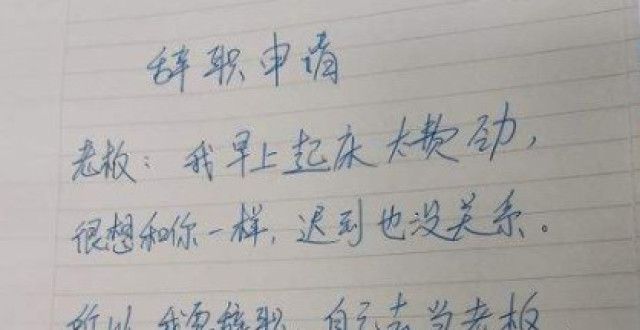 辞职申请
老板：我早上起床太费劲，
很想和你一样，迟到也没关系。
所以我要辞职，自己去当老板